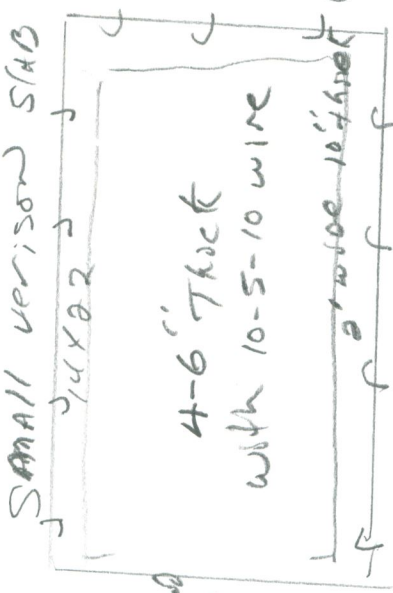 SMAll verison SlAB
14x22
4-6" Thick
with 10-5-10 wire
2' wide 10" thick